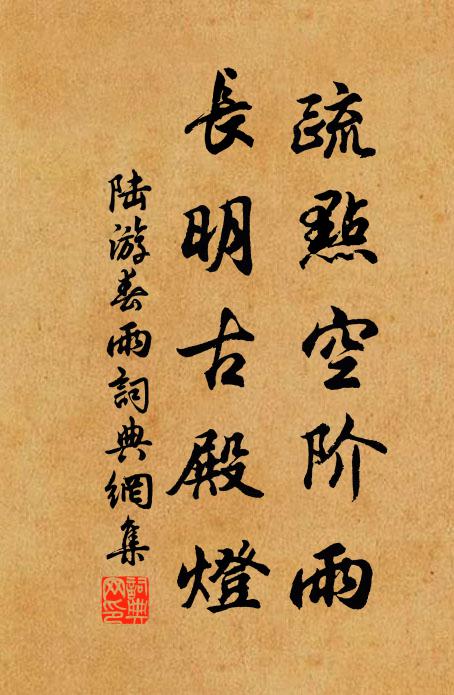 疏點空阶雨
長明古殿燈
陸游春雨詞典網集
詞典网印